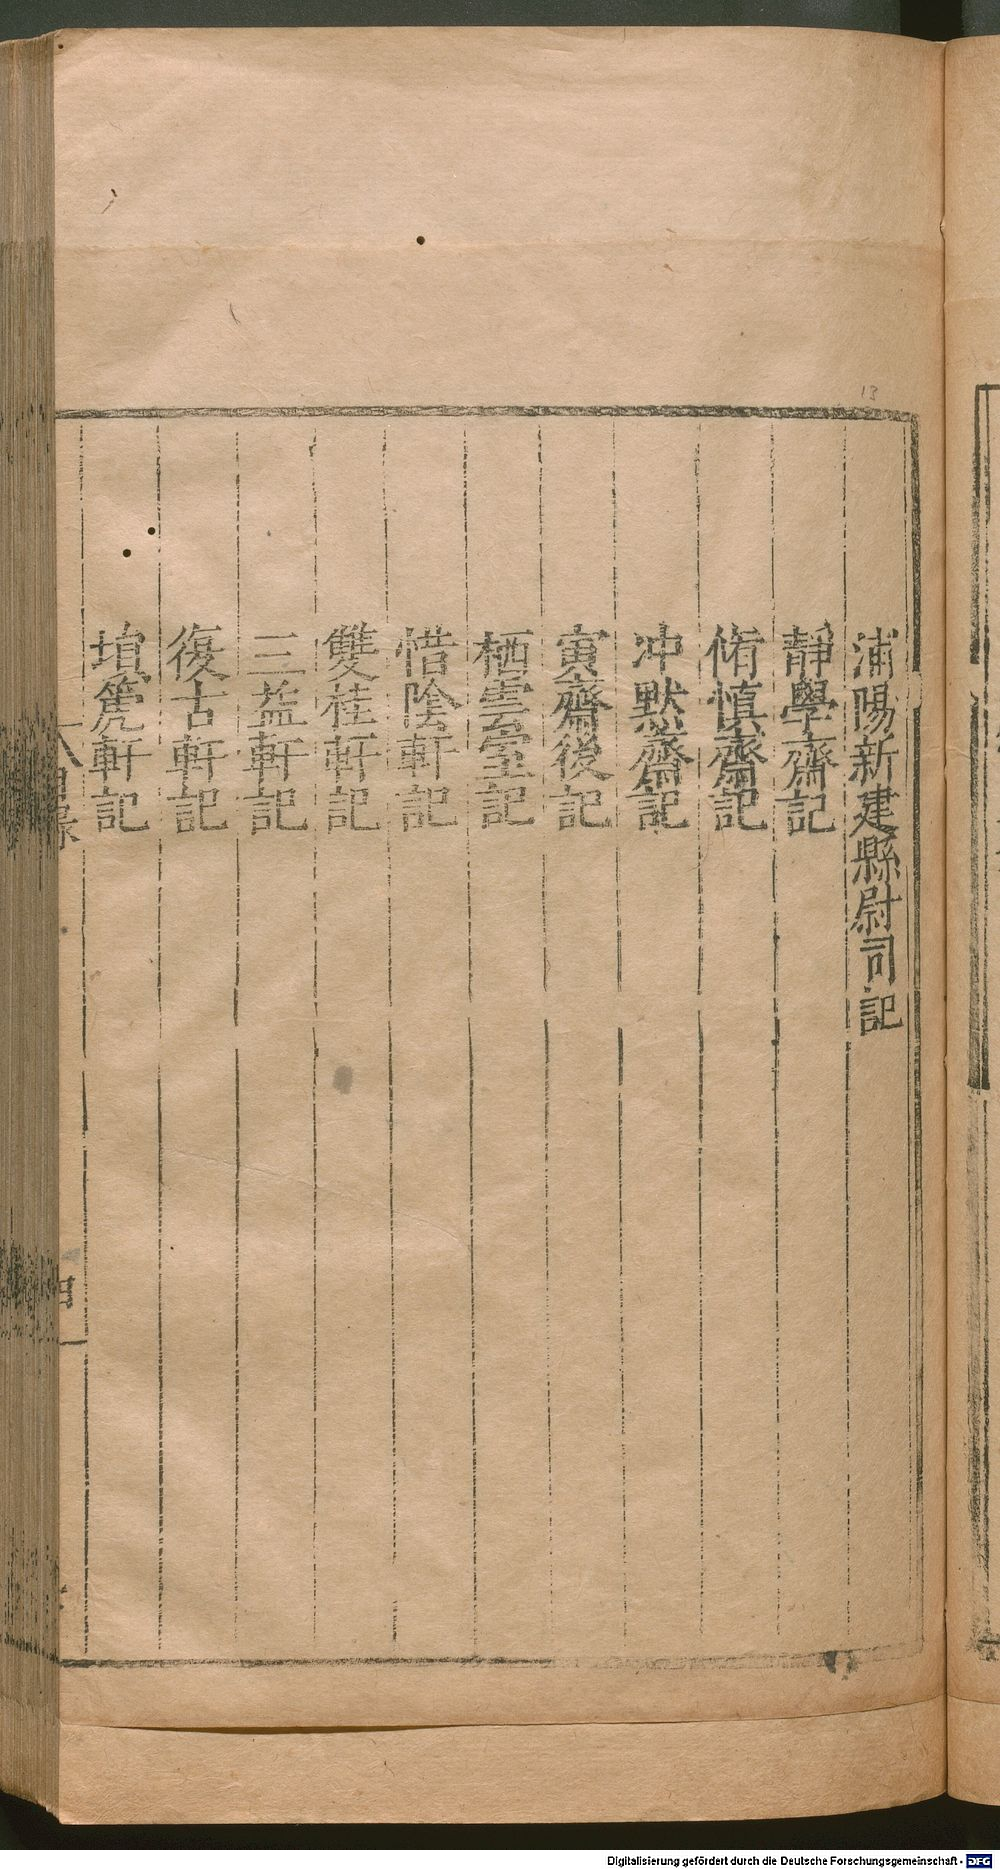 13
浦陽新建縣尉司記
靜學齋記
脩慎齋記
冲默齋記
寅齋後記
栖雲室記
惜陰軒記
雙桂軒記
三益軒記
復古軒記
塤篪軒記
Digitalisierung gefördert durch die Deutsche Forschungsgemeinschaft - DFG